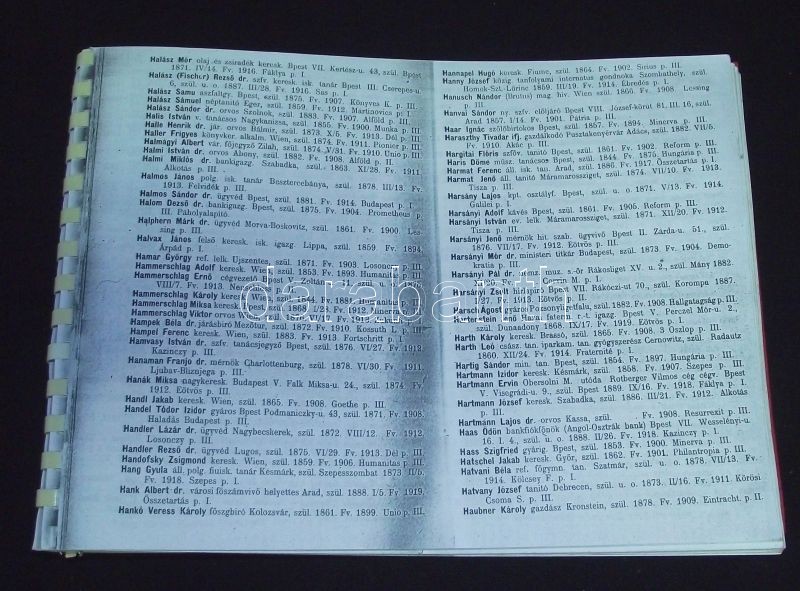 Halász Mór olaj és zsiradék keresk. Bpest VII. Kertész-u. 43, szül. Bpest
1871. IV/14. Fv. 1916. Fáklya p. I.
Halász (Fischer) Rezső dr. szfv. keresk. isk. tanár Bpest III. Cserepes-u.
6, szül. u. o. 1887. III/28. Fv. 1916. Sas p. I.
Halász Samu aszfaltgy. Bpest, szül. 1875. Fv. 1907. Könyves K. p. III.
Halász Sámuel néptanító Eger, szül. 1859. Fv. 1912. Martinovics p. I.
Halász Sándor dr. orvos Szolnok, szül. 1883. Fv. 1907. Alföld p. III.
Halis István v. tanácsos Nagykanizsa, szül. 1855. Fv. 1900. Munka p. III.
Halle Henrik dr. jár. orvos Hálmir, szül. 1873. X/5. Fv. 1913. Dél p. III.
Haller Frigyes könyvkor. alkalm. Wien, szül. 1874. Fv. 1911. Pionier p. III.
Halmágyi Albert vár. főjegyző Zilah, szül. 1874. V/31. Fv. 1910. Unio p. III.
Halmi István dr. orvos Abony, szül. 1882. Fv. 1908. Alföld p. II.
Halmi Miklós dr. bankigazg. Szabadka, szül. 1863. XI/28. Fv. 1911.
Alkotás p. III.
Halmos János polg. isk. ig. tanár Besztercebánya, szül. 1878. III/13. Fv.
1913. Felvidék p. III.
Halmos Sándor dr. ügyvéd Bpest, szül. 1881. Fv. 1914. Budapest p. I.
Halom Dezső dr. bankigazg. Bpest, szül. 1875. Fv. 1904. Prometheus p.
III. Páholyalapító.
Halphern Márk dr. ügyvéd Morva-Boskovitz, szül. 1861. Fv. 1900. Les-
sing p. III.
Halvax János felső keresk. isk. igazg. Lippa, szül. 1859 Fv. 1894.
Árpád p. I.
Hamar György ref. lelk. Ujszentes, szül. 1871. Fv. 1903. Losonczy p. III.
Hammerschlag Adolf keresk. Wien, szül. 1853. Fv. 1893. Humanitás p. III.
Hammerschlag Ernő cégvezető Bpest V. Zoltán
VIII/7. Fv. 1913.
Hammerschlag Károly keresk. Wien, szül. 1844. Fv. 1881. Humanitas p. III.
Hammerschlag Miksa keresk. Bpest, szül. 1868. Fv. 1912. Minerva p. III.
Hammerschlag Viktor orvos
Hampek Béla dr. járásbíró Mezőtur, szül. 1872. Fv. 1910. Kossuth L. p. III.
Hampel Ferenc keresk. Wien, szül. 1883. Fv. 1913. Fortschritt p. I.
Hamvasy István dr. szfv. tanácsjegyző Bpest, szül. 1876. VI/27. Fv. 1912.
Kazinczy p. III.
Hanaman Franjo dr. mérnök Charlottenburg, szül. 1878. VI/30. Fv. 1911.
Ljubav-Blizojega p. III.
Hanák Miksa nagykeresk. Budapest V. Falk Miksa-u. 24., szül. 1874. Fv.
1912. Eötvös p. III.
Handl Jakab keresk. Wien, szül. 1865. Fv. 1908. Goethe p. III.
Handel Tódor Izidor gyáros Bpest Podmaniczky-u. 43, szül. 1871. Fv. 1908.
Haladás Budapest p. III.
Handler Lázár dr. ügyvéd Nagybecskerek, szül. 1872. VIII/12. Fv. 1912.
Losonczy p. III.
Handler Rezső dr. ügyvéd Lugos, szül. 1875. VI/29. Fv. 1913. Dél p. III.
Handofsky Zsigmond keresk. Wien, szül. 1859. Fv. 1906. Humanitas p. III.
Hang Gyula áll. polg. fiuisk. tanár Késmárk, szül. Szepesszombat 1873. II/5.
Fv. 1918. Szepes p. I.
Hank Albert dr. városi főszámvivő helyettes Arad, szül. 1888. I/5. Fv. 1919.
Összetartás p. I.
Hankó Veress Károly főszgbiró Kolozsvár, szül. 1861. Fv. 1899. Unio p. III.
Hannapel Hugó keresk. Fiume, szül. 1864. Fv. 1902. Sirius p. III.
Hanny József közig. tanfolyami internatus gondnoka Szombathely, szül.
Homok-Szt.-Lőrinc 1859. III/19. Fv. 1914. Ébredés p. I.
Hanusch Nándor (Brutus) mag. hiv. Wien szül. 1866. Fv. 1908. Lessing
p. III.
Hanvai Sándor ny. szfv. előljáró Bpest VIII. József-körut 81. III. 16, szül.
Arad 1857. I/14. Fv. 1901. Pátria p. III.
Haar Ignác szőlőbirtokos Bpest, szül. 1857. Fv. 1894. Minerva p. III.
Haraszthy Tivadar ifj. gazdálkodó Pusztakenyérvár Adács, szül. 1882. VII/5.
Fv. 1910. Akác p. III.
Hargitai Flóris szfőv. tanító Bpest, szül. 1861. Fv. 1902. Reform p. III.
Haris Döme müsz. tanácsos Bpest, szül. 1844. Fv. 1875. Hungária p. III.
Harmat Ferenc áll. isk. tan. Arad, szül. 1886. Fv. 1917. Összetartás p. I.
Harmat Jenő áll. tanitó Máramarossziget, szül. 1874. VII/10. Fv. 1913.
Tisza p. III.
Harsány Lajos kpt. osztályf. Bpest, szül. u. o. 1871. V/13. Fv. 1914.
Galilei p. I.
Harsányi Adolf kávés Bpest, szül. 1861. Fv. 1905. Reform p. III.
Harsányi István ev. lelk. Máramarossziget, szül. 1871. XII/20. Fv. 1912.
Tisza p. III.
Harsányi Jenő mérnök hit. szab. ügyvivő Bpest II. Zárda-u. 51., szül.
1876. VII/17. Fv. 1912. Eötvös p. III.
Harsányi Mór dr. ministeri titkár Budapest, szül. 1873. Fv. 1904. Demo-
kratia p. III.
Harsányi Pál dr. muz. s.-őr Rákosliget XV. u. 2., szül. Mány 1882.
p. I.
Harsányi Zsolt hirlapiró Bpest VII. Rákóczi-ut 70., szül. Korompa 1887.
I/27. Fv. 1913. Eötvös p. II.
Harsch Ágost gyáros Pozsonyligetfalu, szül. 1882. Fv. 1908. Hallgatagság p. III.
r.-t. igazg. Bpest V. Perczel Mór-u. 2.,
szül. Dunaadony 1868. IX/17. Fv. 1919. Eötvös p. I.
Harth Károly keresk. Brassó, szül. 1865. Fv. 1908. 3 Oszlop p. III.
Harth Leó csász. tan. iparkam. tan. gyógyszerész Cernowitz, szül. Radautz
1860. XII/24. Fv. 1914. Fraternité p. I.
Hartig Sándor min. tan. Bpest, szül. 1854. Fv. 1897. Hungária p. III.
Hartmann Izidor keresk. Késmárk, szül. 1858. Fv. 1907. Szepes p. III.
Hartmann Ervin Obersolni M. utóda Rotberger Vilmos cég cégv. Bpest
V. Visegrádi-u. 9., szül. Bpest 1889. IX/16. Fv. 1918. Fáklya p. I.
Hartmann József keresk. Szabadka, szül. 1886. III/21. Fv. 1912. Alkotás
p. III.
Hartmann Lajos dr. orvos Kassa, szül. Fv. 1908. Resurrexit p. III.
Haas Ödön bankfiókfőnök (Angol-Osztrák bank) Bpest VII. Wesselényi-u.
16. I. 4., szül. u. o. 1888. II/26. Fv. 1918. Kazinczy p. I.
Hass Szigfried gyárig. Bpest, szül. 1853. Fv. 1900. Minerva p. III.
Hatschel Jakab keresk. Győr, szül. 1862. Fv. 1901. Philantropia p. III.
Hatvani Béla ref. főgymn. tan. Szatmár, szül. u. o. 1878. VII/13. Fv.
1914. Kölcsey F. p. I.
Hatvany József tanító Debrecen, szül. u. o. 1873. II/16. Fv. 1911. Körösi
Csoma S. p. III.
Haubner Károly gazdász Kronstein, szül. 1878. Fv. 1909. Eintracht. p. II
darabanth